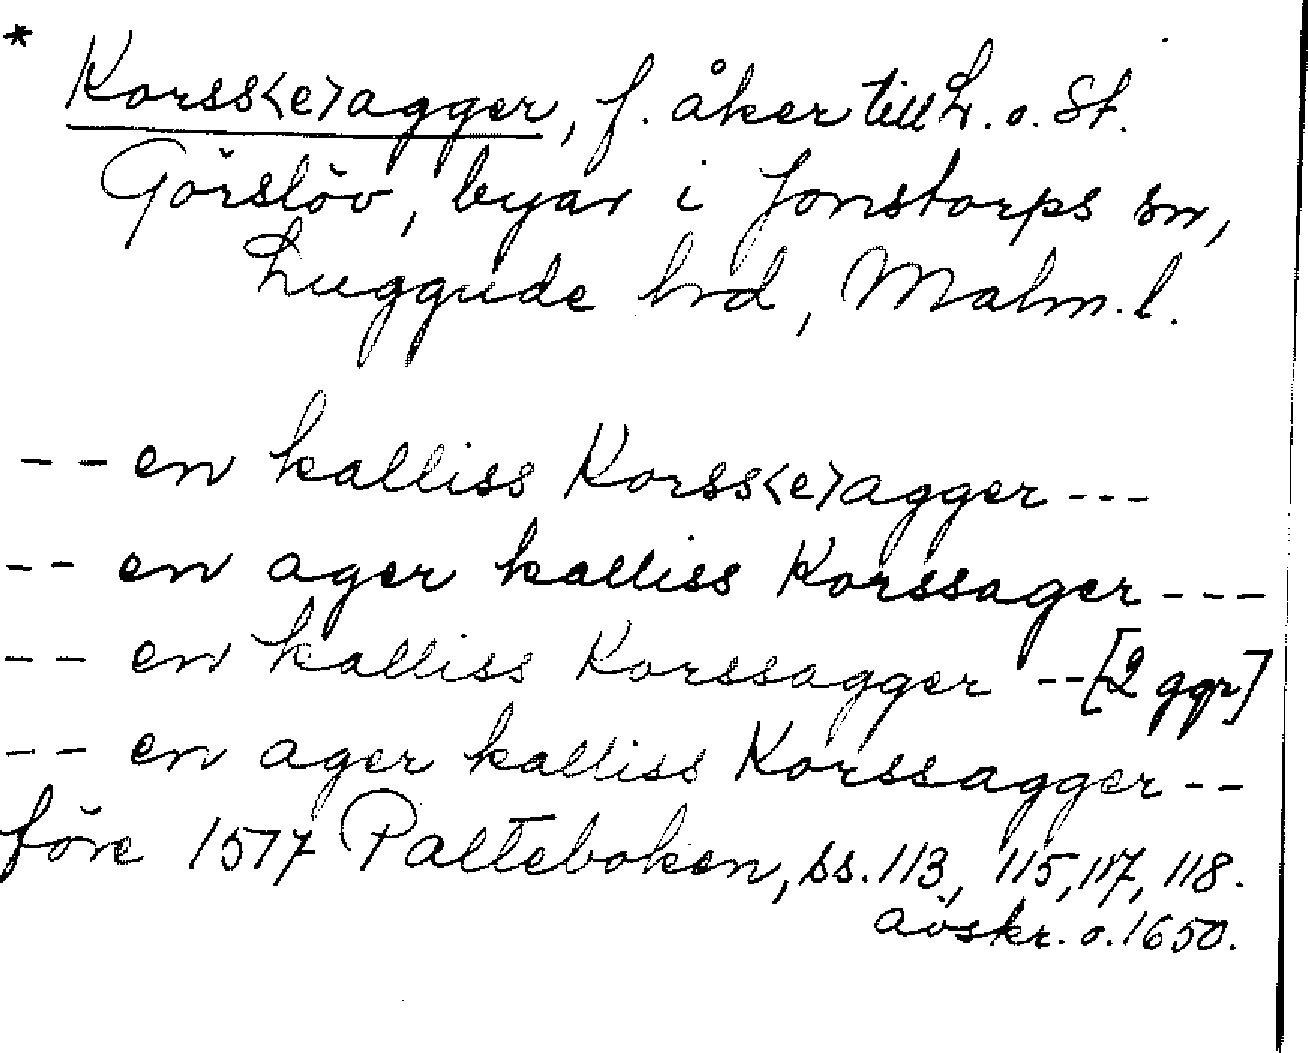 * Korss<e>agger, f. åker till L. o. St.
Görslöv, byar i Jonstorps sn,
Luggude hrd, Malm. l.
-- en kalliss Korss<e>agger ---
-- en ager kalliss Korssager ---
-- en kalliss Korssagger --[2 ggr]
-- en ager kalliss Korssagger --
före 1577 Palteboken, ss. 113, 115, 117, 118.
avskr. o. 1650.